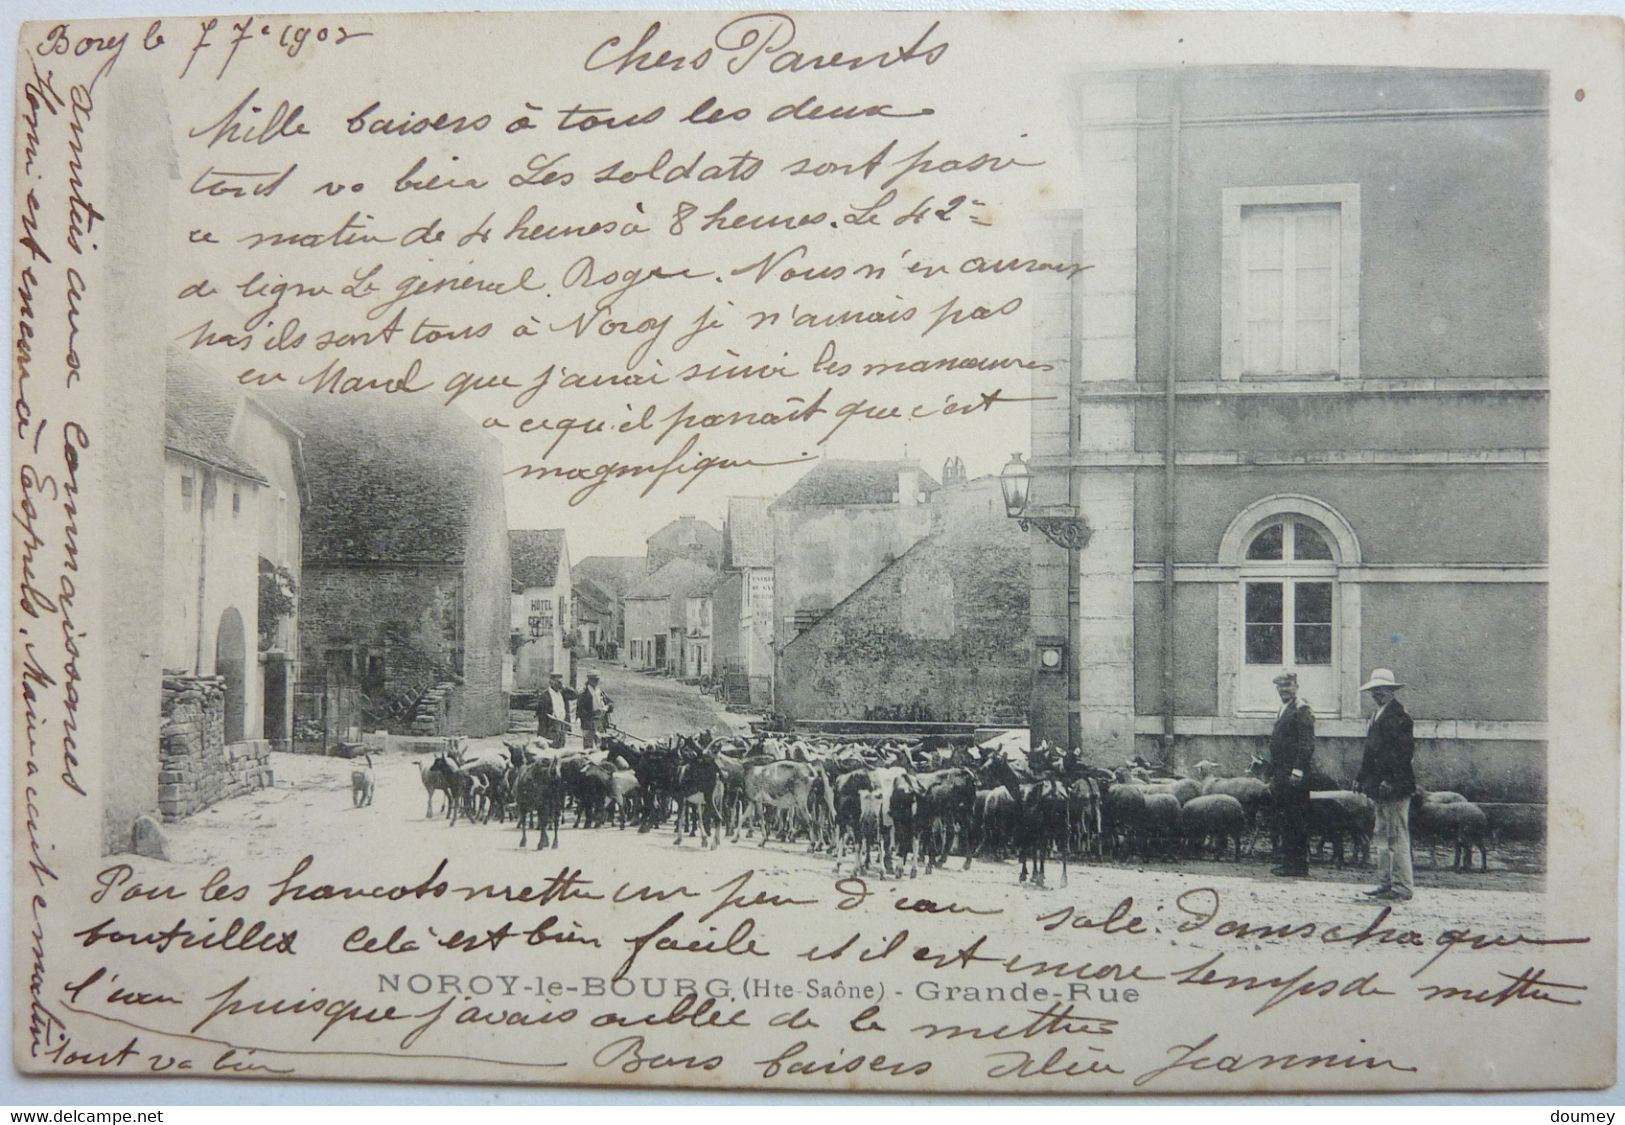 Borey le 7 7e 1902
Chers Parents
Mille baisers à tous les deux
tout va bien Les soldats sont passé
ce matin de 4 heures à 8 heures. Le 42e
de ligne Le général. Roger. Nous n'en aurons
pas ils sont tous à Noroy je n'aurais pas
en Marcel que j'aurai suivi les manœuvres
a ce qu'il paraît que c'est
magnifique.
Amitiés aux Connaissances
Henri est encore à Esprels. Maria cuit ce matin
HOTEL
CENTRE
Pour les haricots mettre un peu d'eau salé. Dans chaque
bouteilles Celà est bien facile et il est encore temps de mettre
NOROY-le-BOURG (Hte-Saône) - Grande-Rue
l'eau puisque j'avais oublié de le mettre
tout va bien
Bons baisers Jeannin
delcampe.net
doumey